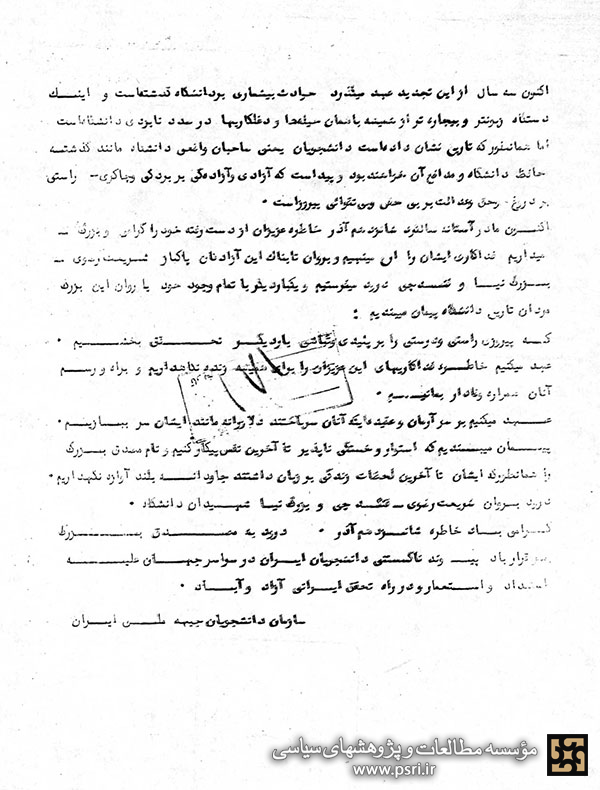 اکنون سه سال از این تجدید عهد میگذرد حوادث بیشماری بر دانشگاه گذشته است و اینک
دستگاه زبونتر و بیچاره تر از همیشه با همان حیله‌ها و دغلکاریها در صدد نابودی دانشگاه است
اما همانطور که تاریخ نشان داده است دانشجویان یعنی صاحبان واقعی دانشگاه مانند گذشته
حافظ دانشگاه و مدافع آن خواهند بود و پیداست که آزادی و آزادگی بر بردگی و راستی
بر دروغ حق و عدالت بر بی حقی و بی تقوائی پیروز است .
اکنون ما در آستانه سالروز شانزدهم آذر خاطره عزیزان از دست رفته خود را گرامی و بزرگ
میداریم فداکاری ایشان را میکنیم و بروان تابناک این آزادگان پاکباز شریعت رضوی
بزرگ نیا و قندچی درود میفرستیم و یکبار دیگر با تمام وجود خود با روان این بزرگ
مردان تاریخ دانشگاه پیمان میبندیم :
که پیروزی راستی و درستی را بر پلیدی و تباهی بار دیگر تحقق بخشیم .
عهد میکنیم خاطره فداکاریهای این عزیزان را برای همیشه زنده نگاهداریم و براه و رسم
آنان همواره وفادار بمانیم .
عهد میکنیم بر سر آرمان و عقیده ایکه آنان سر باختند دلاورانه مانند ایشان سر ببازیم .
پیمان میبندیم که استوار و خستگی ناپذیر تا آخرین نفس پیکار کنیم و نام مصدق بزرگ
را همانطور که ایشان تا آخرین لحظات زندگی بر زبان داشتند جاودانه بلند آوازه نگهداریم .
درود بروان شریعت رضوی - قندچی و بزرگ نیا شهیدان دانشگاه .
گرامی باد خاطره شانزدهم آذر . درود به مصدق بزرگ
برقرار باد پیوند ناگسستنی دانشجویان ایران در سراسر جهان علیه
استبداد و استعمار و در راه تحقق ایرانی آزاد و آباد .
سازمان دانشجویان جبهه ملی ایران
۱۷۱
مؤسسه مطالعات و پژوهشهای سیاسی
www.psri.ir